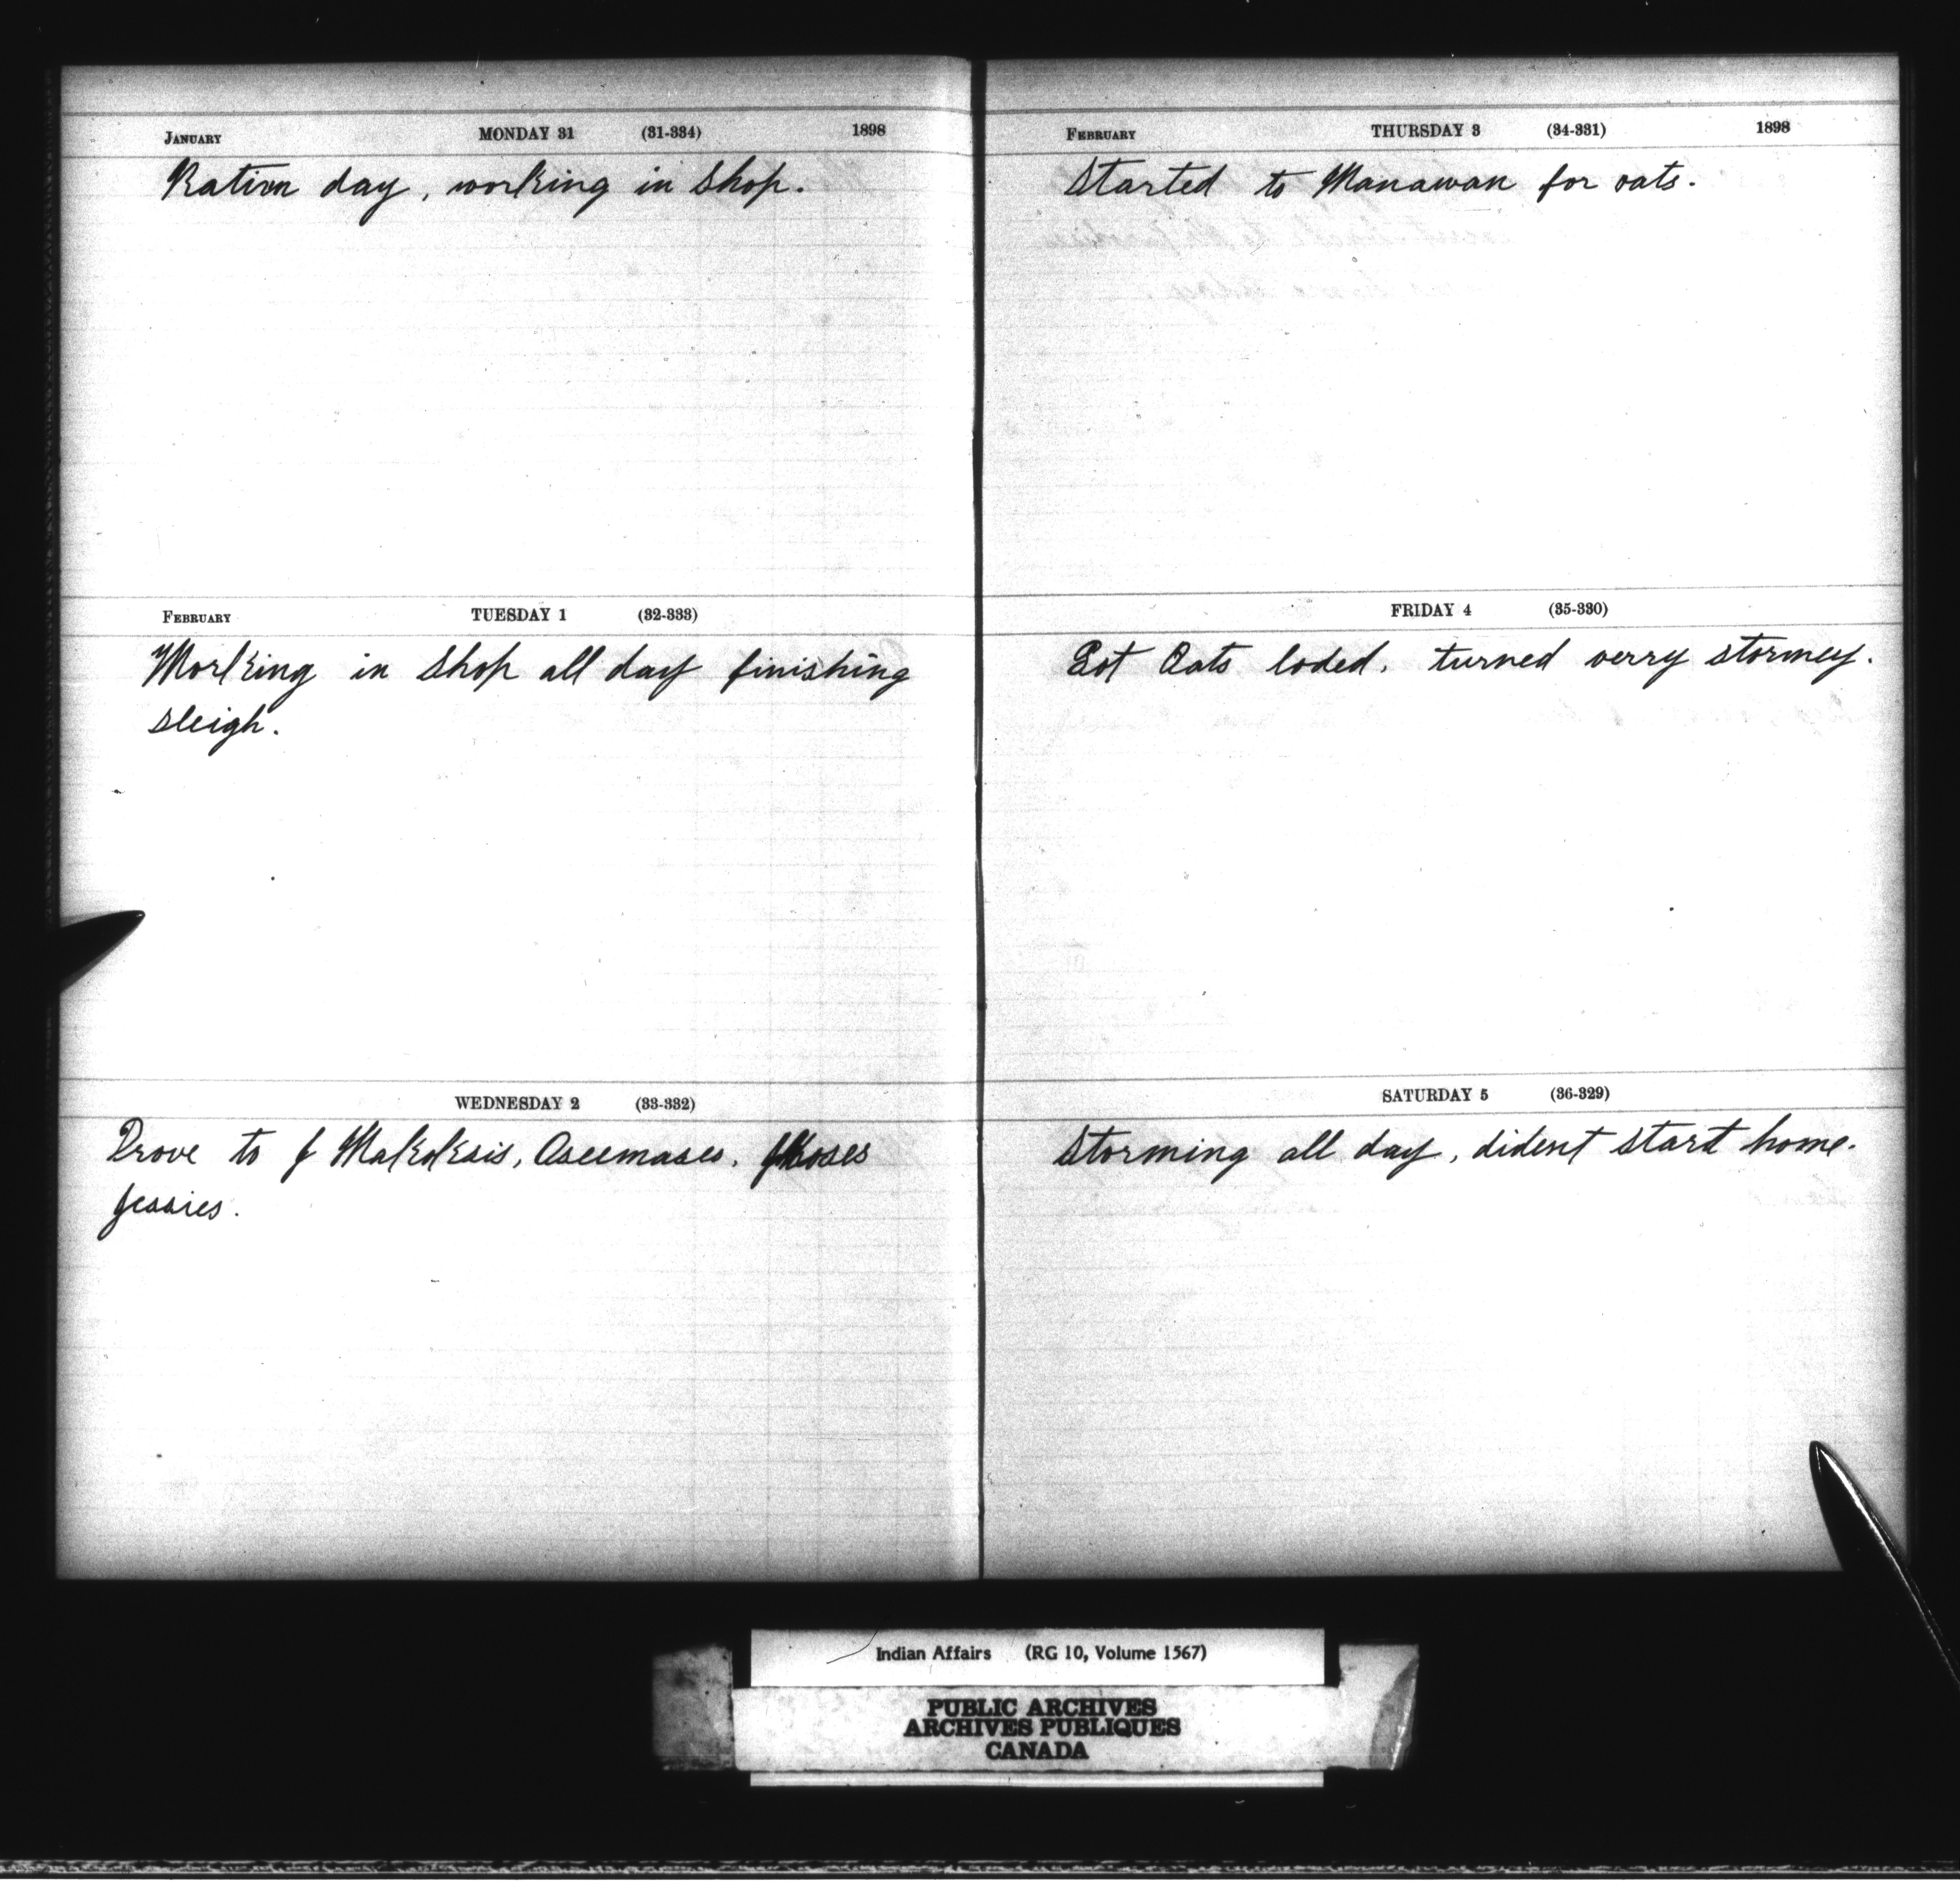 January MONDAY 31 (31-334) 1898
Ration day, working in Shop.
February TUESDAY 1 (32-333)
Working in Shop all day finishing
sleigh.
WEDNESDAY 2 (33-332)
Drove to J Makoksis, Aseemases,
Jessies.
February THURSDAY 3 (34-331) 1898
Started to Manawan for oats.
FRIDAY 4 (35-330)
Got Oats loded, turned verry stormey.
SATURDAY 5 (36-329)
Storming all day, dident start home.
Indian Affairs (RG 10, Volume 1567)
PUBLIC ARCHIVES
ARCHIVES PUBLIQUES
CANADA